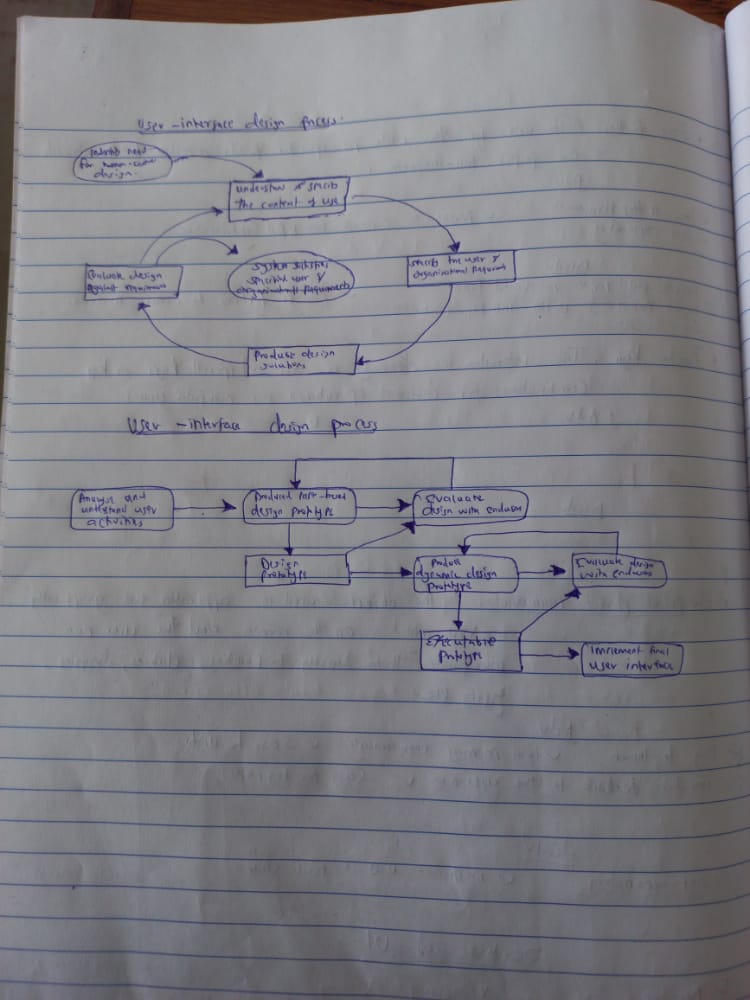 User-interface design process.
Identify need
for human-centred
design.
understand & specify
the context of use
Evaluate design
against requirements
System satisfies
specified user &
organisational requirements
specify the user &
organisational requirements
Produce design
solutions
User-interface design process
Analyse and
understand user
activities
Produced paper-based
design prototype
Evaluate
design with endusers
Design
prototype
Produce
dynamic design
prototype
Evaluate design
with endusers
Executable
prototype
Implement final
user interface